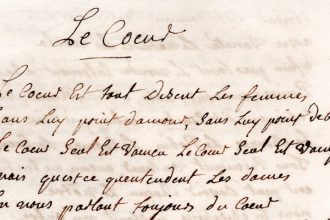 Le Coeur
Le Coeur Est tout Disent Les femmes
Sans Luy point damour, Sans Luy point de
Le Coeur Seul Est vaineu Le Coeur Seul Est vain
mais quest ce quentendent Les dames
En nous parlant toujours du Coeur